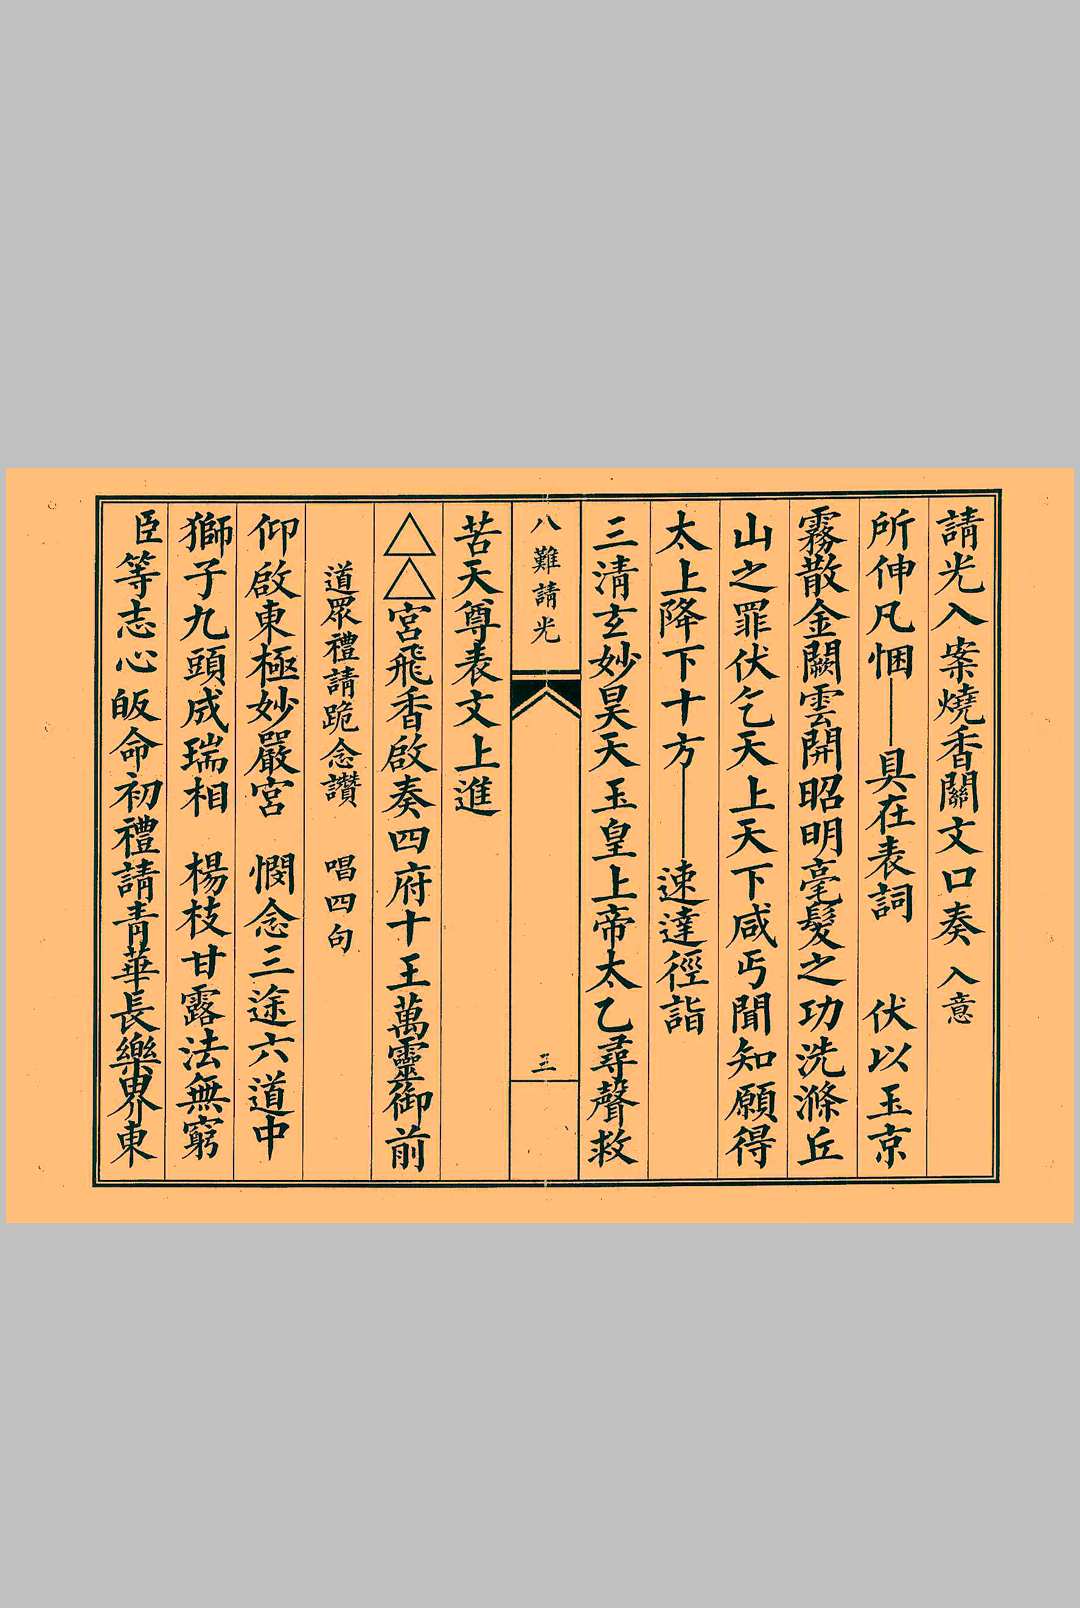 請光入案燒香關文口奏 入意
所伸凡悃——具在表詞 伏以玉京
霧散金闕雲開昭明毫髮之功洗滌丘
山之罪伏乞天上天下咸丐聞知願得
太上降下十方——速達徑詣
三清玄妙昊天玉皇上帝太乙尋聲救
八難請光 三
苦天尊表文上進
△△宮飛香啟奏四府十王萬靈御前
道眾禮請跪念讚 唱四句
仰啟東極妙嚴宮 憫念三途六道中
獅子九頭成瑞相 楊枝甘露法無窮
臣等志心皈命初禮請青華長樂界東